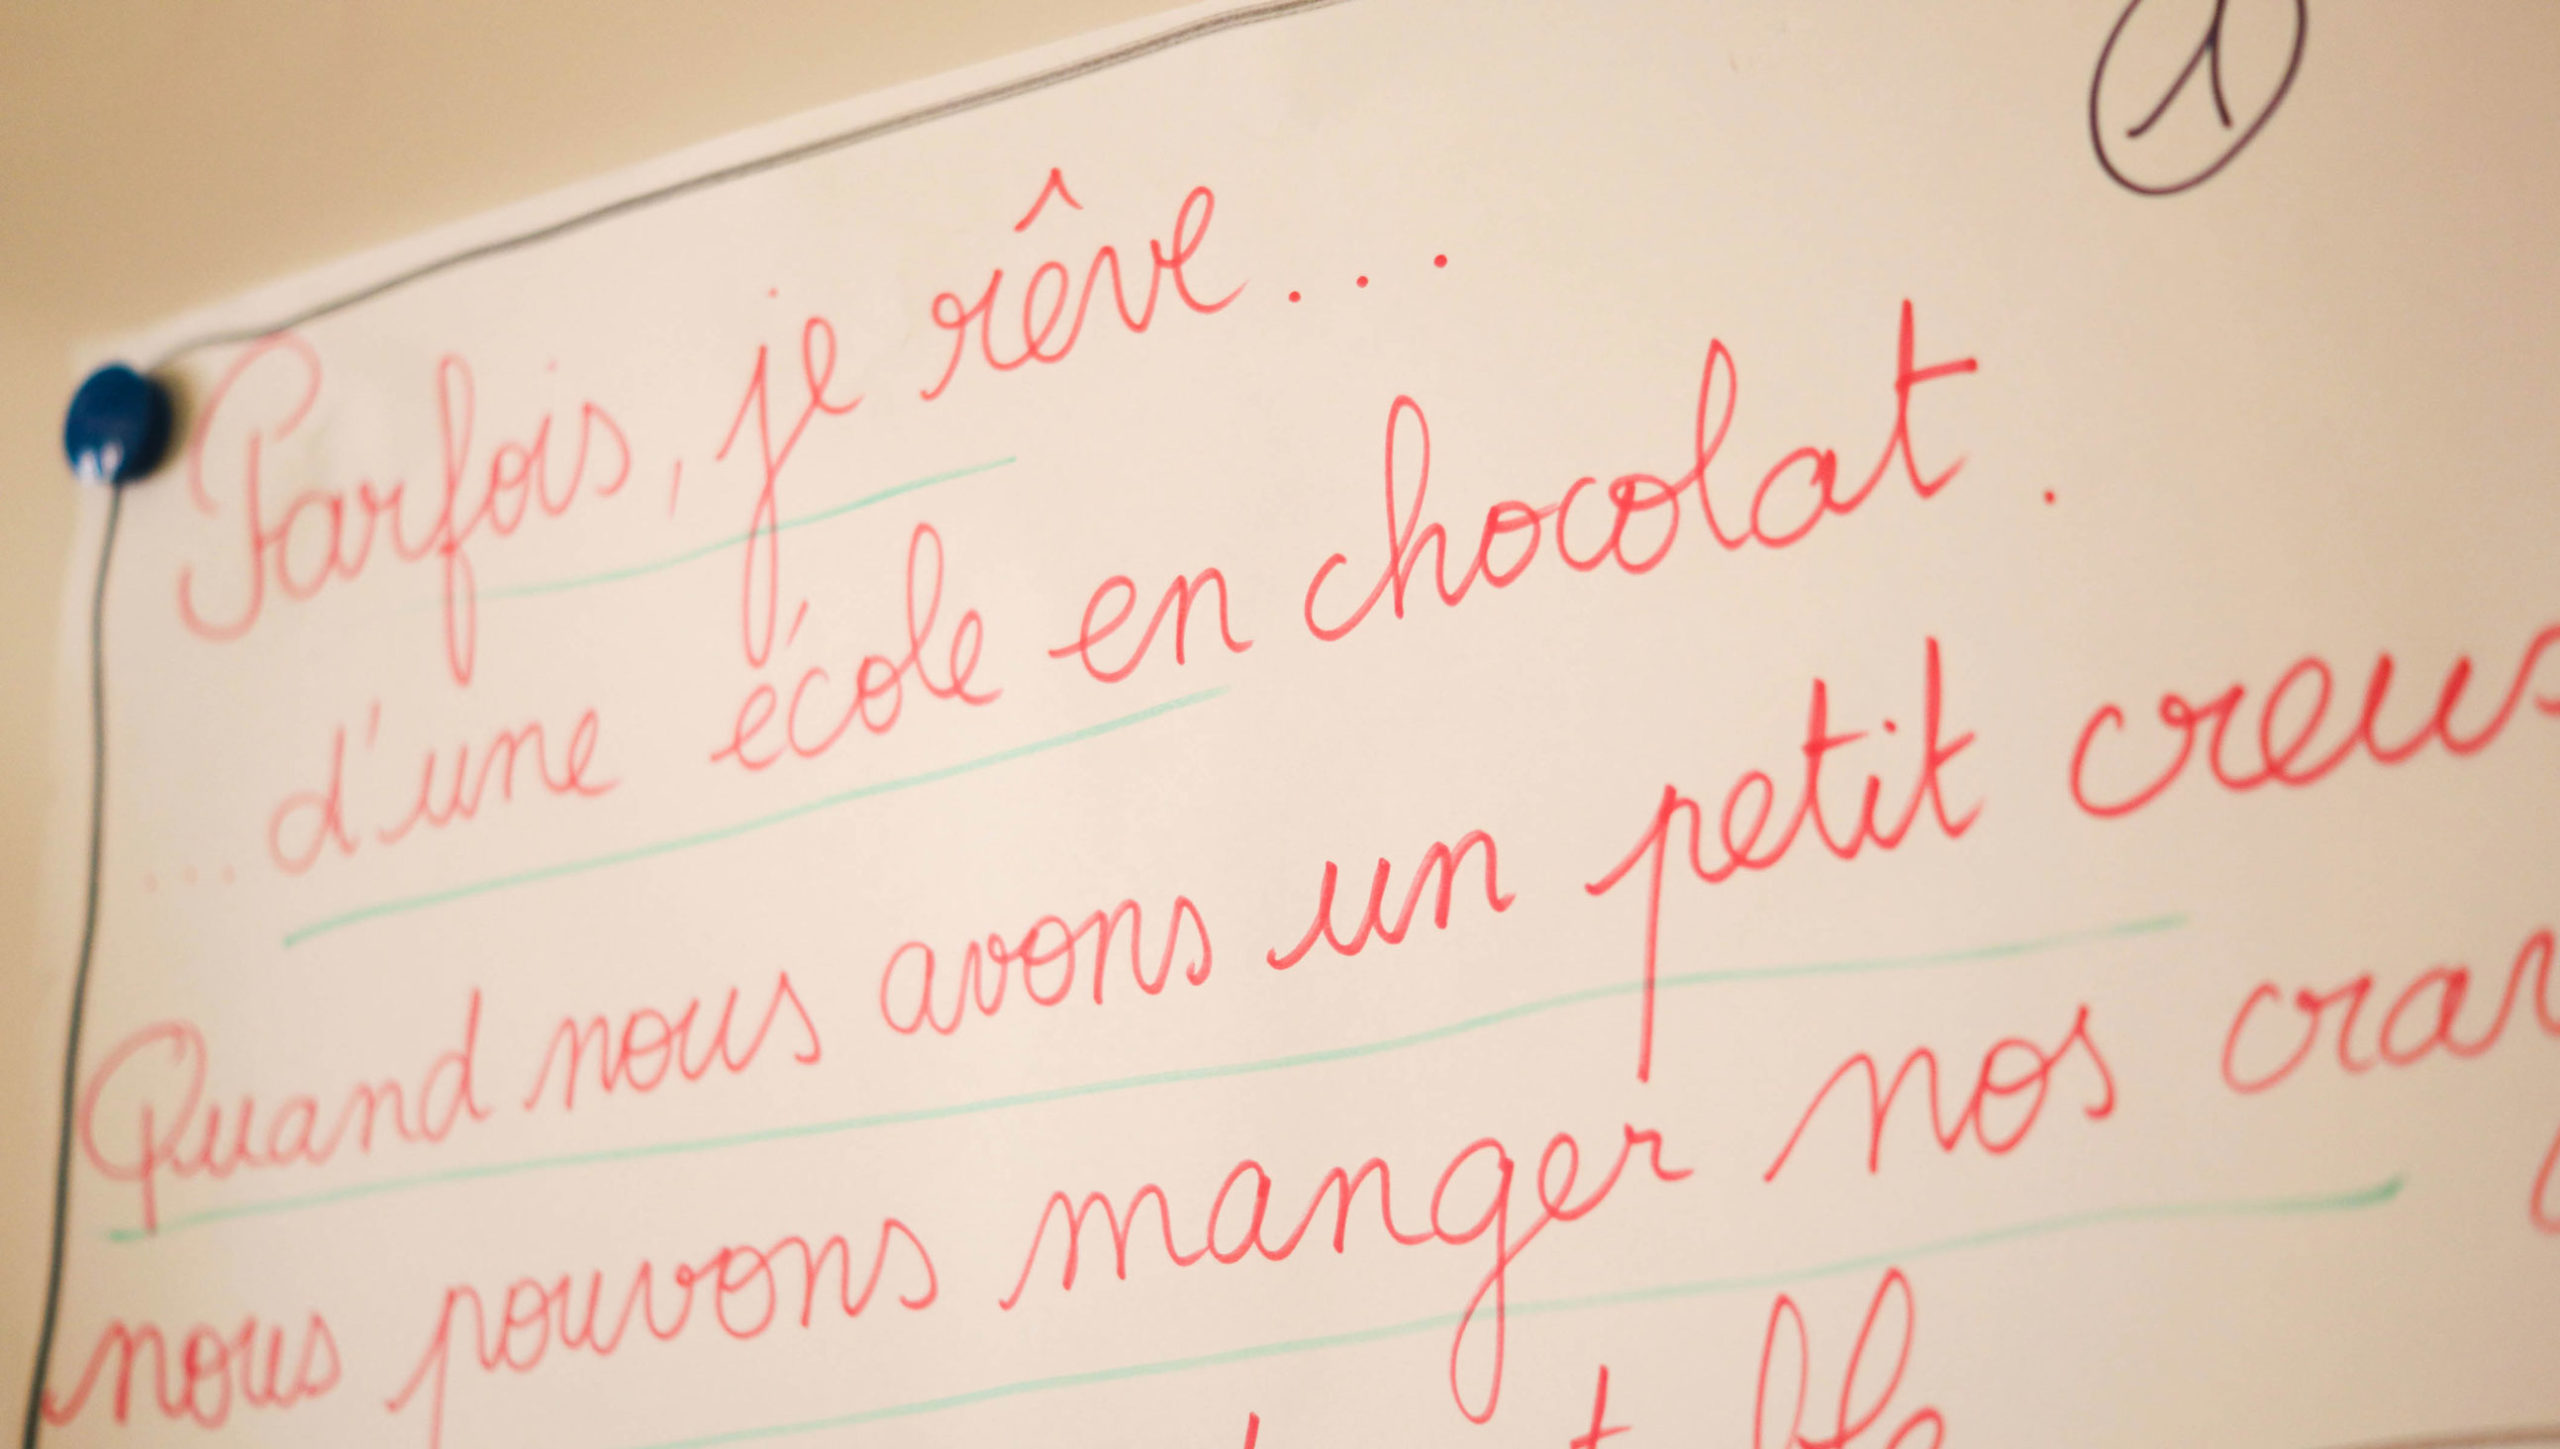 1
Parfois, je rêve...
...d'une école en chocolat.
Quand nous avons un petit creux
nous pouvons manger nos cray